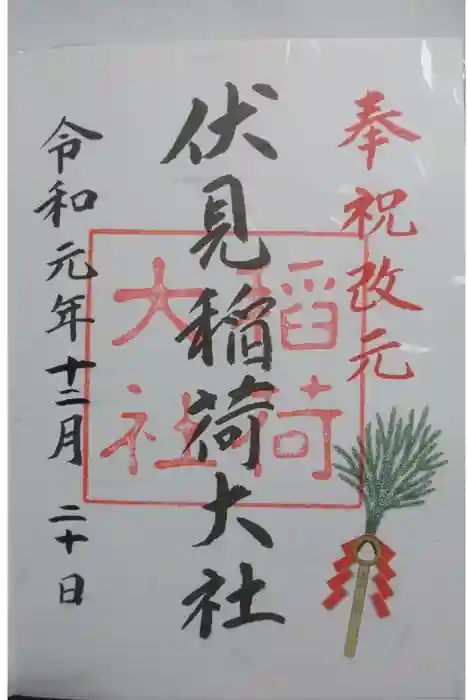 奉祝改元
伏見稲荷大社
稲荷
大社
令和元年十二月二十日